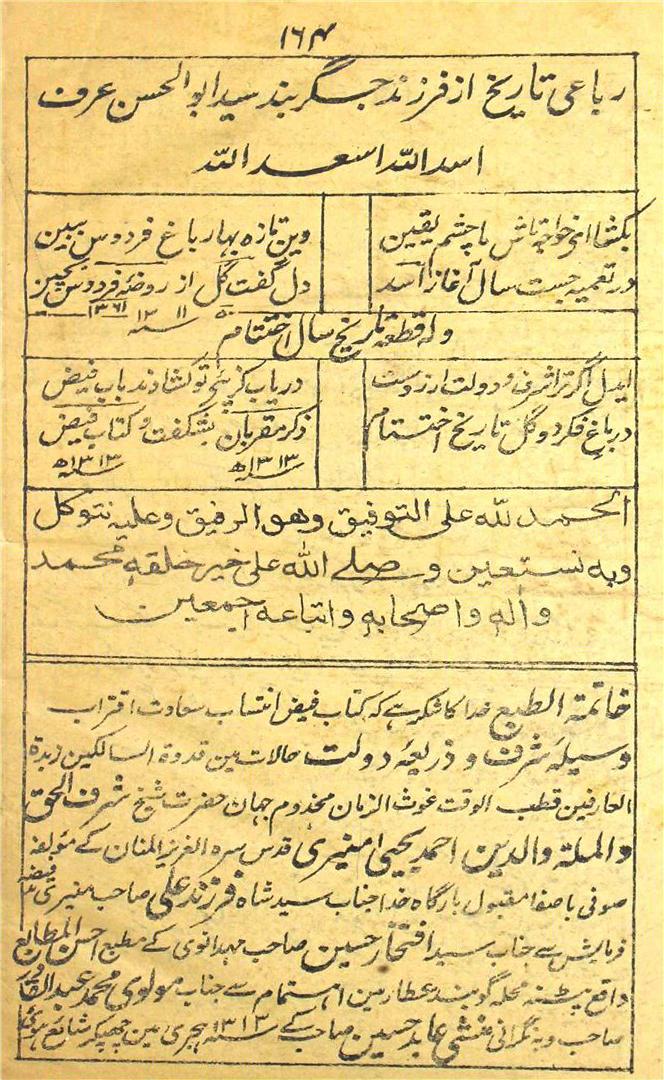 ۱۶۴
رباعی تاریخ از فرزند جگر بند سید ابو الحسن عرف
اسد اللہ اسعد اللہ
بکشا ای خواجہ تاش با چشم یقین
وین تازہ بہار باغ فردوس ببین
در تعمیہ جست سال آغاز اسد
دل گفت گل از روضۂ فردوس بچین
ولہ قطعہ تاریخ سال اختتام
ایدل اگر ترا شرف و دولت آرزوست
دریاب کز پئی تو کشادند باب فیض
در باغ فکر دو گل تاریخ اختتام
ذکر مقربان بشگفت و کتاب فیض
سنہ ۱۳۱۳ھ
سنہ ۱۳۱۳ھ
الحمد للہ علی التوفیق وھو الرفیق وعلیہ نتوکل
وبہ نستعین وصلے اللہ علی خیر خلقہٖ محمد
واٰلہٖ واصحابہٖ واتباعہ اجمعین
خاتمۃ الطبع خدا کا شکر ہے کہ کتاب فیض انتساب سعادت اقتراب
وسیلۂ شرف و ذریعۂ دولت حالات مین قدوۃ السالکین زبدۃ
العارفین قطب الوقت غوث الزمان مخدوم جہان حضرت شیخ شرف الحق
والملۃ والدین احمد یحییٰ منیری قدس سرہ العزیز المنان کے مؤلفہ
صوفی باصفا مقبول بارگاہ خدا جناب سید شاہ فرزند علی صاحب منیری
فرمایش سے جناب سید افتخار حسین صاحب مہدانوی کے مطبع احسن المطابع
واقع پٹنہ محلہ گوبند عطار مین اہتمام سے جناب مولوی محمد عبد القادر
صاحب وبہ نگرانی منشی عابد حسین صاحب کے سنہ ۱۳۱۳ ہجری مین چھپکر شائع ہوئی